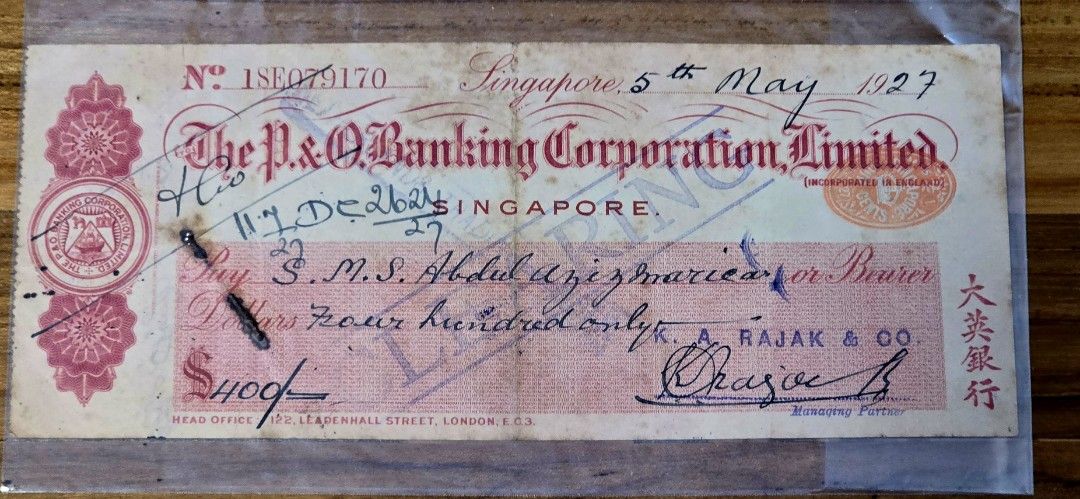 Nº 1SE079170 Singapore, 5th May 1927
The P.&O. Banking Corporation, Limited.
(INCORPORATED IN ENGLAND)
SINGAPORE.
Pay S. M. S. Abdul Azizmaricar or Bearer
Dollars Four hundred only
K. A. RAJAK & CO.
$400/-
Managing Partner
HEAD OFFICE 122, LEADENHALL STREET, LONDON, E.C.3.
大英銀行
THE P.&O. BANKING CORPORATION, LIMITED
CLEARING